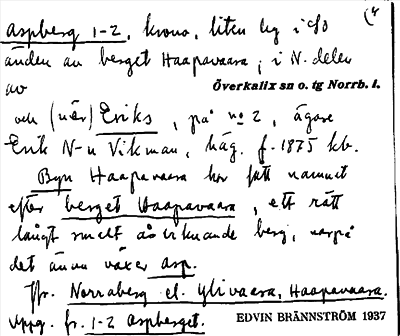 Aspberg 1-2, krono, liten by i SO
änden av berget Haapavaara, i N. delen
av Överkalix sn o. tg Norrb. l.
och (när) Eriks, på no 2, ägare
Erik N-n Vikman, häg. f. 1875 kb.
Byn Haapavaara har fått namnet
efter berget Haapavaara, ett rätt
långt smalt ås liknande berg, varpå
det ännu växer asp.
Jfr. Norraberg el. Ylivaara, Haapavaara.
Uppg. fr. 1-2 Aspberget. EDVIN BRÄNNSTRÖM 1937